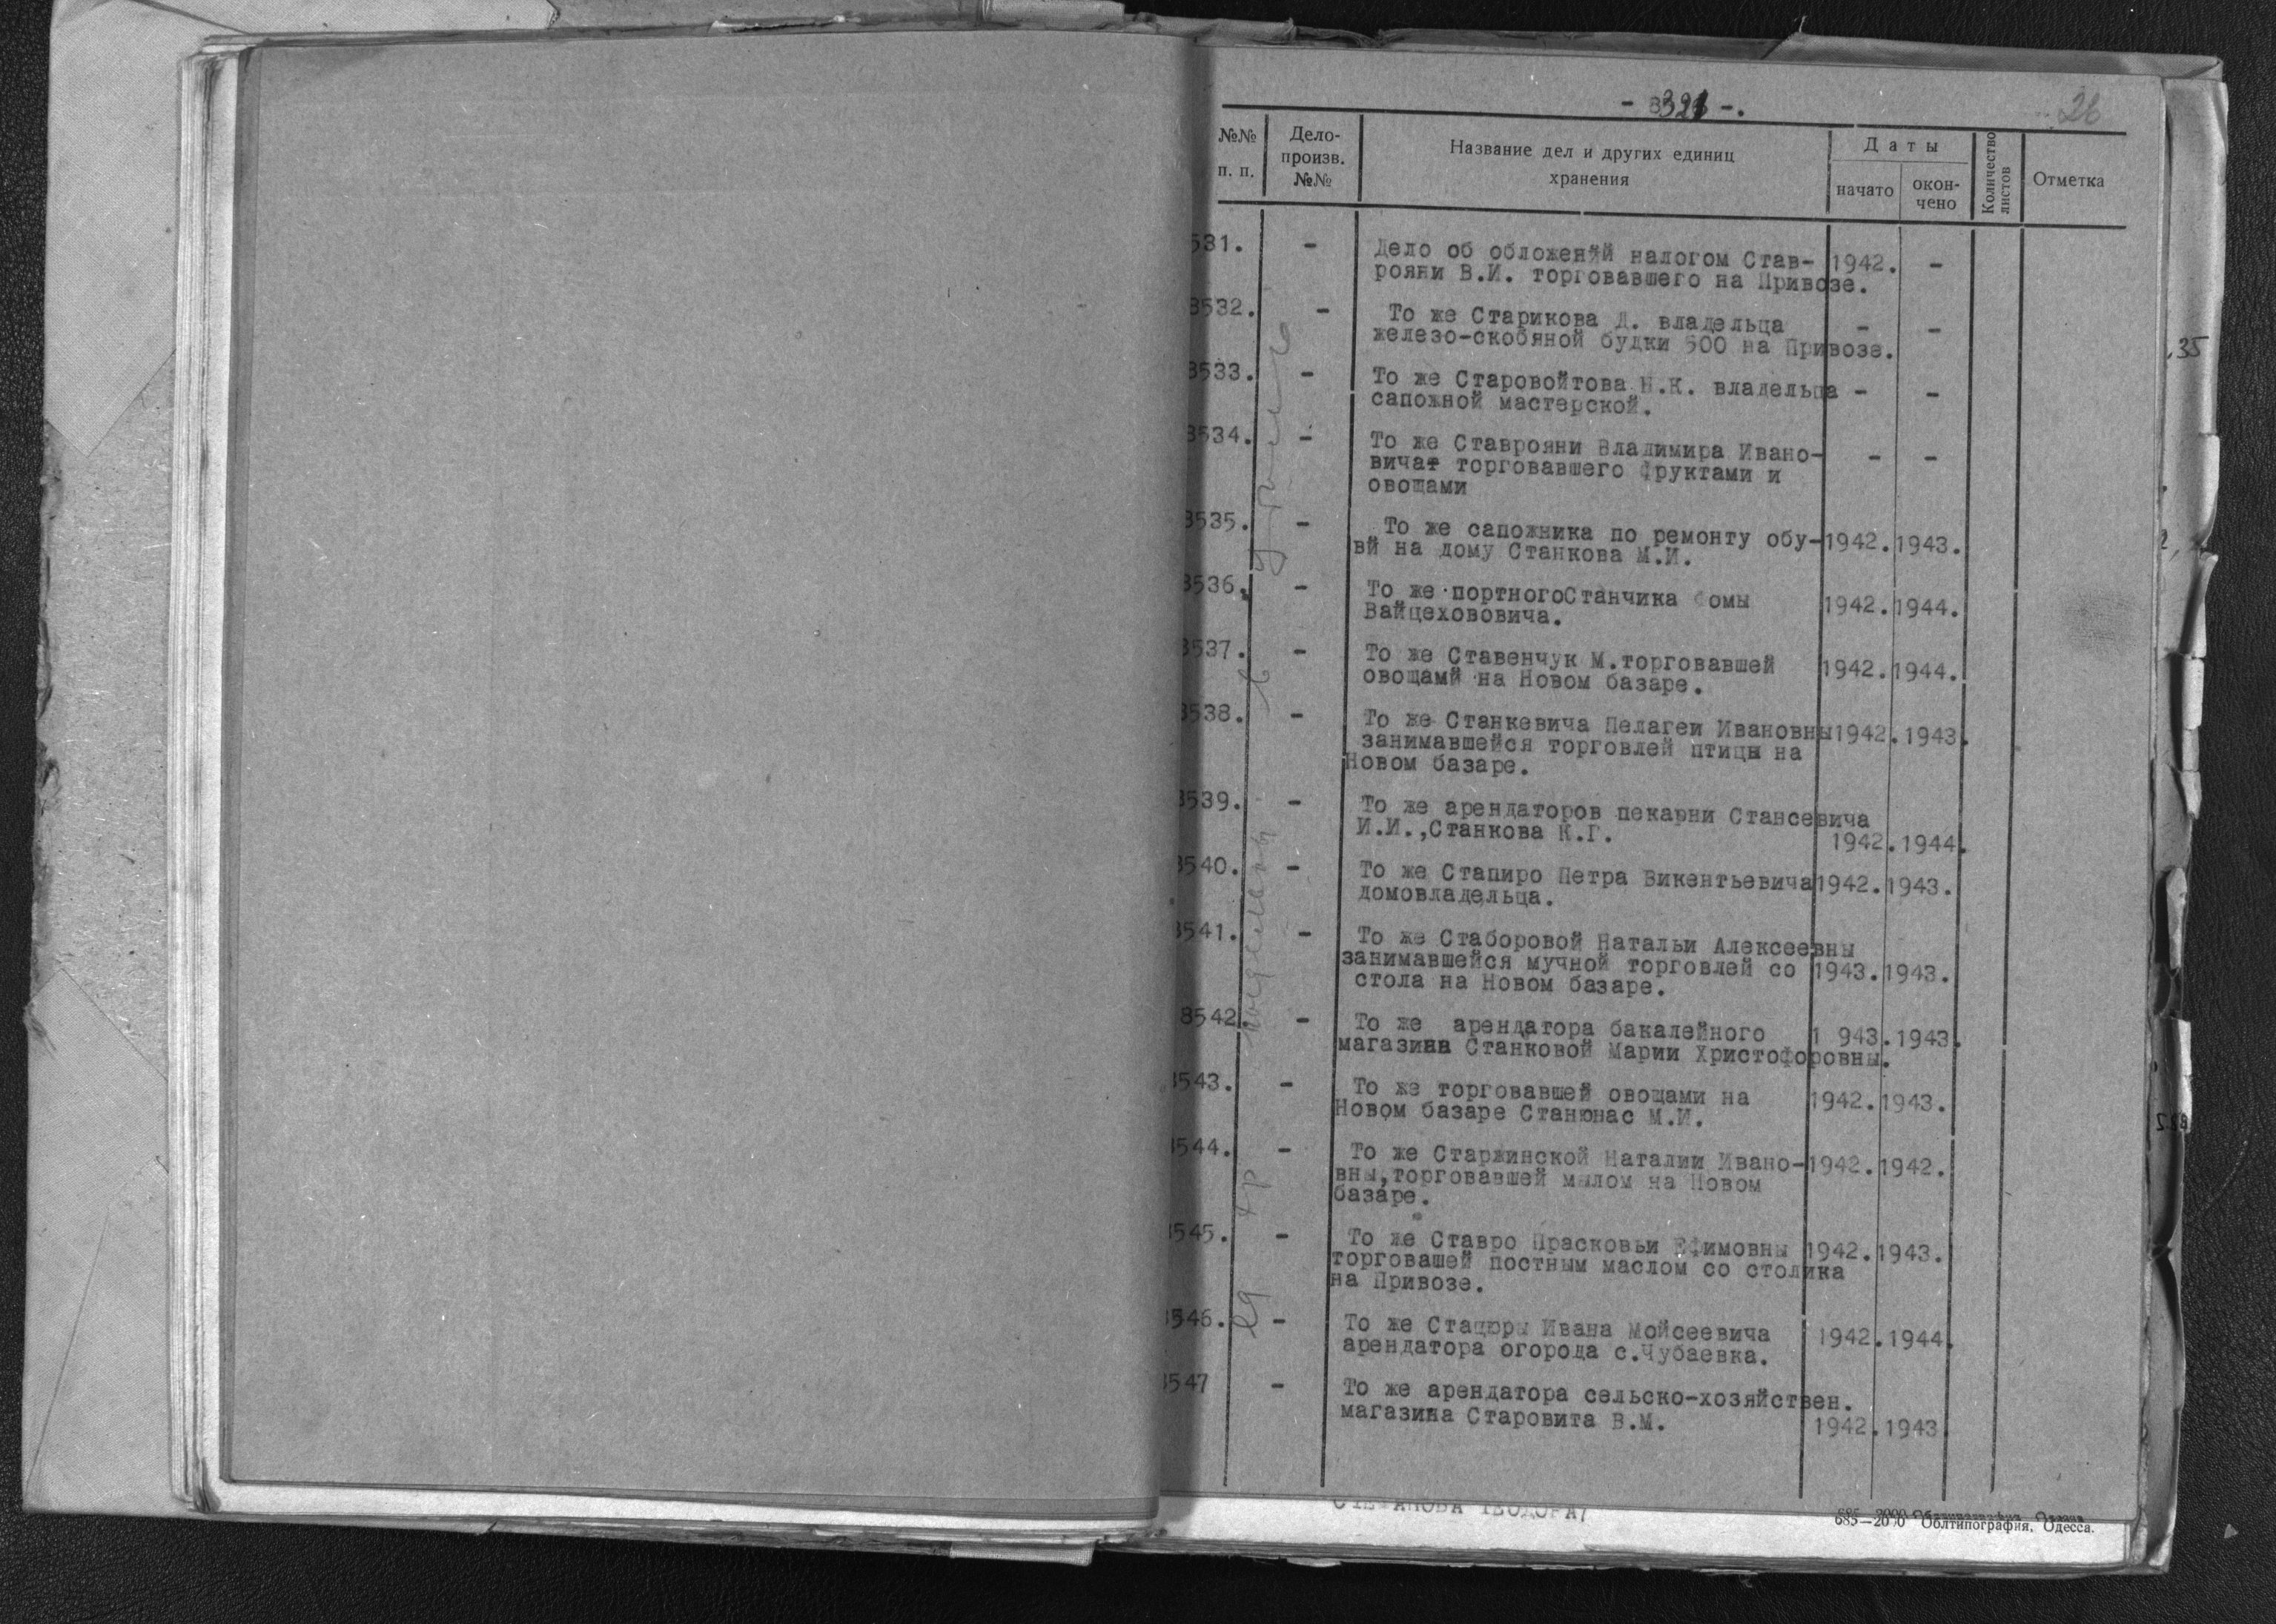 - 321 -.
26
№№ п. п.
Дело-произв. №№
Название дел и других единиц хранения
Даты
начато
окон-чено
Количество листов
Отметка
531. - Дело об обложений налогом Став- 1942. -
рояни В.И. торговавшего на Привозе.
8532. - То же Старикова Д. владельца - -
железо-скобяной будки 500 на Привозе.
8533. - То же Старовойтова Н.К. владельца - -
сапожной мастерской.
8534. - То же Ставрояни Владимира Ивано- - -
вичат торговавшего фруктами и
овощами
8535. - То же сапожника по ремонту обу- 1942. 1943.
вй на дому Станкова М.И.
8536. - То же портногоСтанчика Фомы 1942. 1944.
Вайцехововича.
8537. - То же Ставенчук М.торговавшей 1942. 1944.
овощамй на Новом базаре.
8538. - То же Станкевича Пелагеи Ивановны 1942. 1943.
занимавшейся торговлей птицы на
Новом базаре.
8539. - То же арендаторов пекарни Стансевича
И.И.,Станкова К.Г. 1942. 1944.
8540. - То же Стапиро Петра Викентьевича 1942. 1943.
домовладельца.
8541. - То же Стаборовой Натальи Алексеевны
занимавшейся мучной торговлей со 1943. 1943.
стола на Новом базаре.
8542 - То же арендатора бакалейного 1 943. 1943.
магазина Станковой Марии Христофоровны.
8543. - То же торговавшей овощами на 1942. 1943.
Новом базаре Станюнас М.И.
8544. - То же Старжинской Наталии Ивано- 1942. 1942.
вны,торговавшей мылом на Новом
базаре.
8545. - То же Ставро Прасковьи Ефимовны 1942. 1943.
торговашей постным маслом со столика
на Привозе.
8546. - То же Стацюры Ивана Мойсеевича 1942. 1944.
арендатора огорода с.Чубаевка.
8547 - То же арендатора сельско-хозяйствен.
магазина Старовита В.М. 1942. 1943
685—2000 Облтипография, Одесса.
35